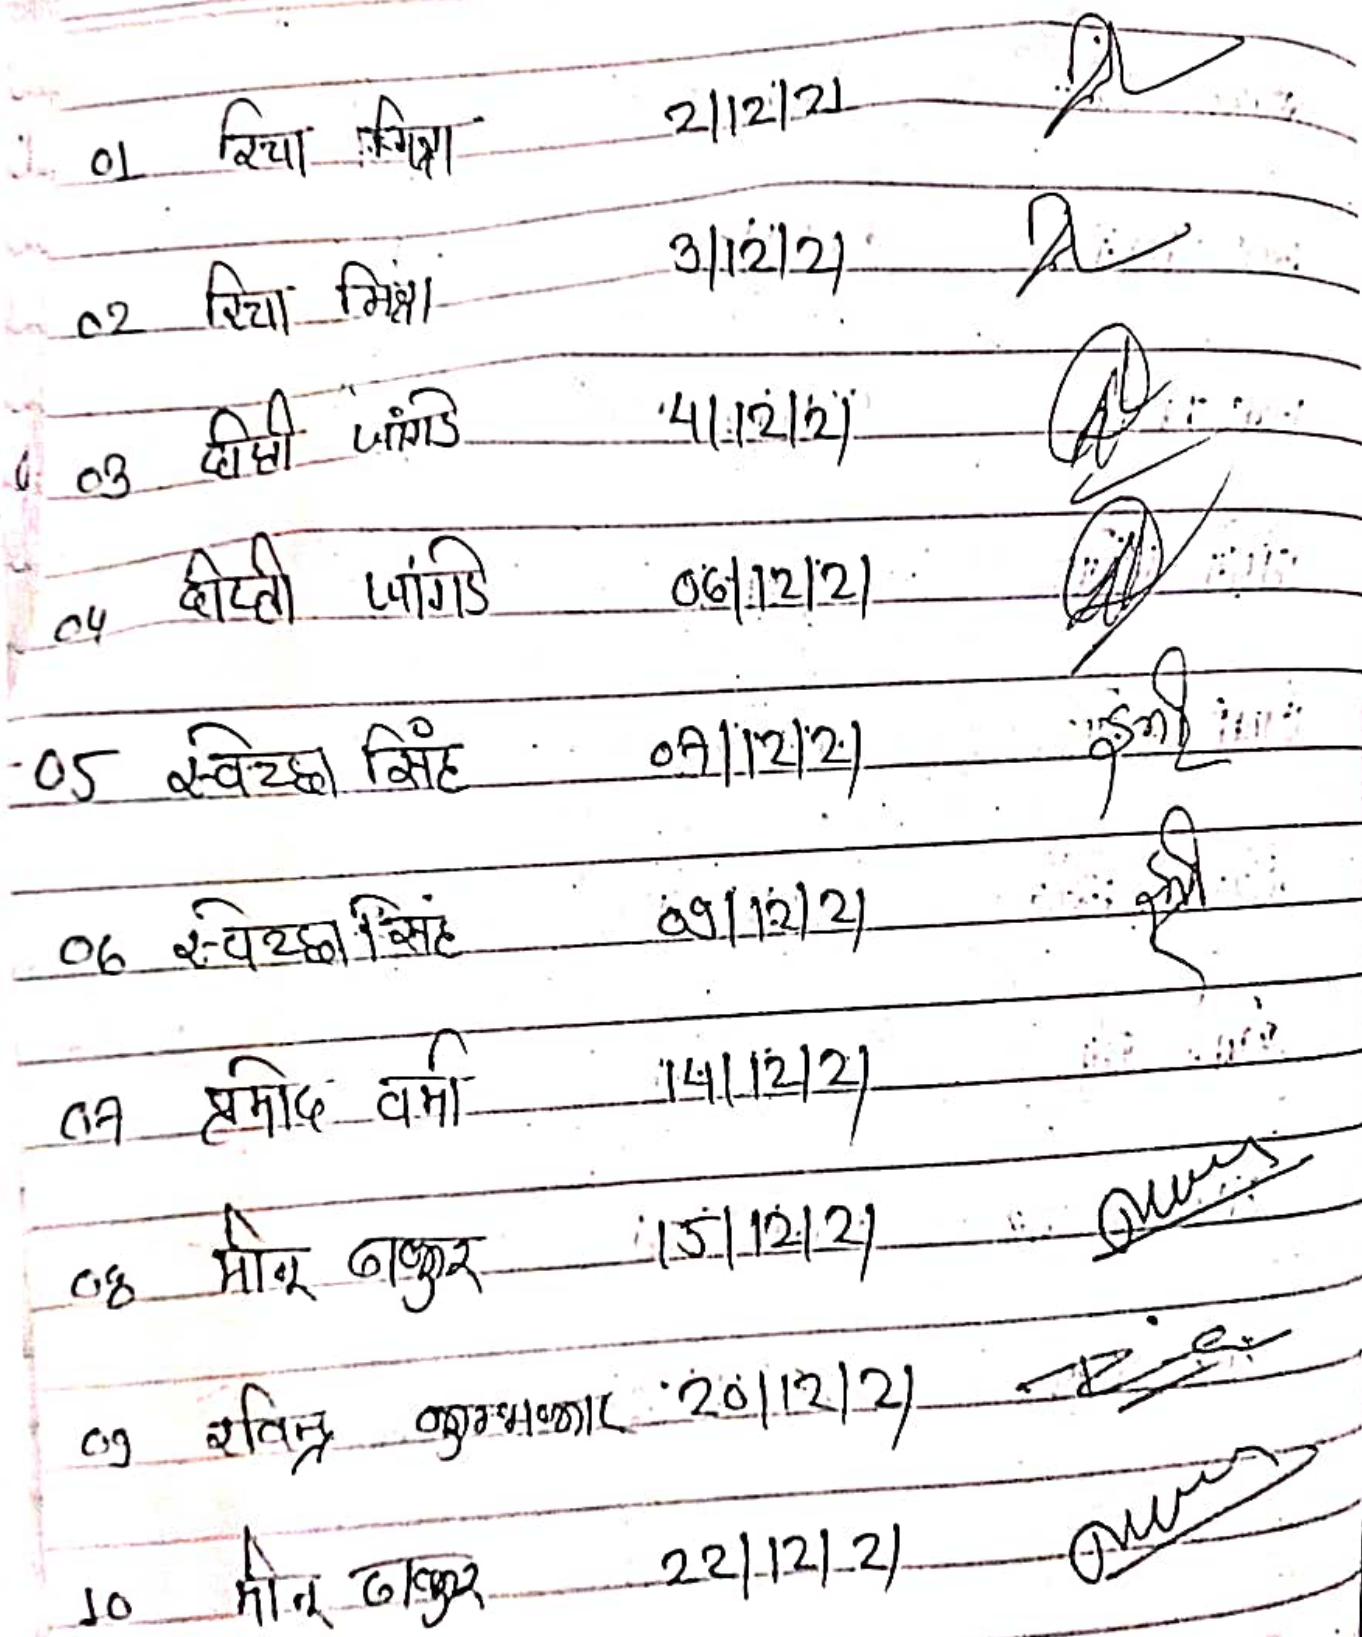 01 रिचा मिश्रा 2/12/21
02 रिचा मिश्रा 3/12/21
03 दीप्ती जांगडे 4/12/21
04 दीप्ती जांगडे 06/12/21
05 स्वेच्छा सिंह 07/12/21
06 स्वेच्छा सिंह 09/12/21
07 प्रमोद वर्मा 14/12/21
08 मोनू ठाकुर 15/12/21
09 रविन्द्र कुम्भकार 20/12/21
10 मोनू ठाकुर 22/12/21